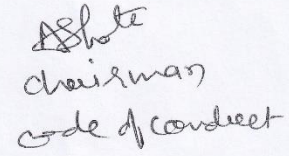 AShote
chairman
code of conduct